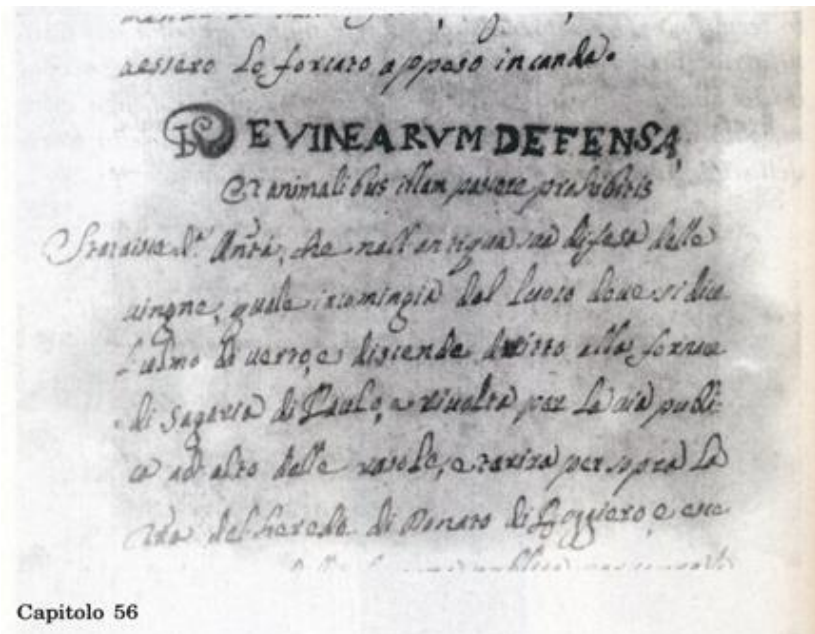 essere lo forzato apposo in canda.
DE VINEARVM DEFENSA,
Et animalibus illam pascere prohibitis
d.ª Un.tà, che nall'antiqua sua difesa delle
uingne, quale incomingia dal luoco doue si dice
l'ulmo di uerro, e discende diritto alla fornace
di Sagaria di Paulo, e riuolta per la uia publi-
ca ad alto delle, e per sopra la
del herede di Donato di Roggiero, e
Capitolo 56